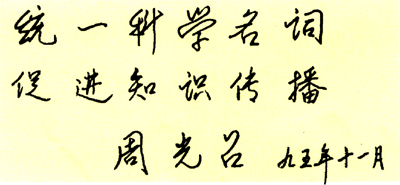 统一科学名词
促进知识传播
周光召 九五年十一月